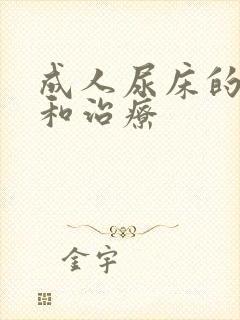 成人尿床的
和治疗
金宇